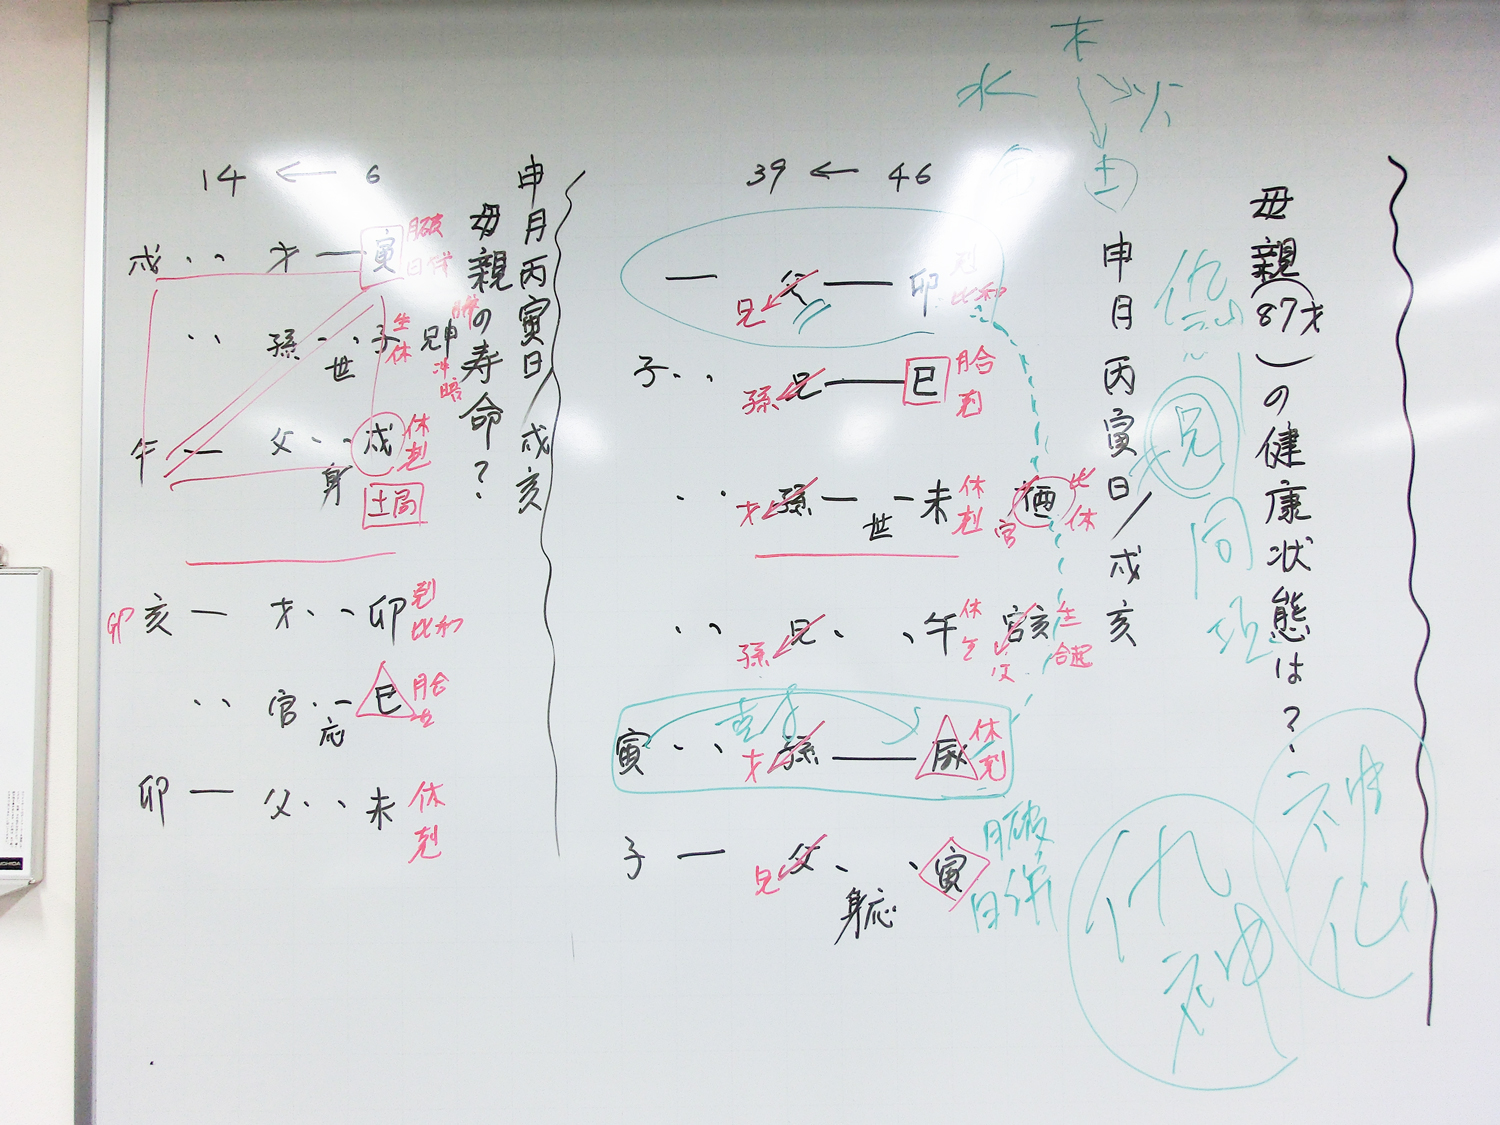 母親(87才)の健康状態は?
申月丙寅日/戌亥
木
水
火
土
仇
兄
同
神
仇
仇
神
39 ← 46
父 卯 剋
兄 比和
子 兄 巳 月合
孫 剋
孫 世 未 休 酉 比
才 剋 官 休
兄 午 休 官亥 生
孫 父 合起
寅 孫 辰 休
才 剋
子 父 寅 月破
兄 身応 日併
申月丙寅日/戌亥
母親の寿命?
14 ← 6
戌 才 寅 月破
日併
孫 世 子 生 兄申
休 冲
暗
午 父 戌 休
身 剋
土局
亥 才 卯 剋
比和
官 応 巳 月合
卯 父 未 休
剋